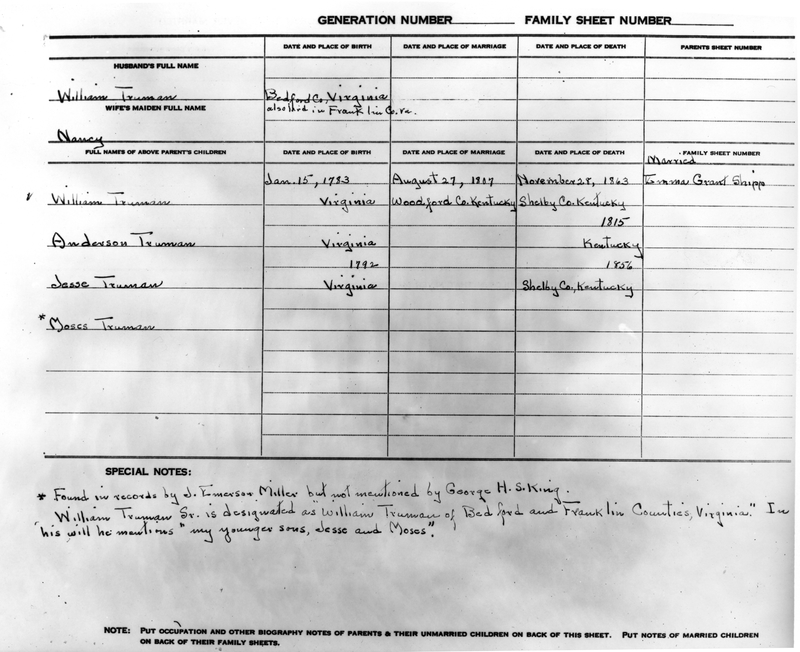 GENERATION NUMBER FAMILY SHEET NUMBER
DATE AND PLACE OF BIRTH DATE AND PLACE OF MARRIAGE DATE AND PLACE OF DEATH PARENTS SHEET NUMBER
HUSBAND'S FULL NAME
William Truman Bedford Co., Virginia
WIFE'S MAIDEN FULL NAME also lived in Franklin Co. Va.
Nancy
FULL NAMES OF ABOVE PARENT'S CHILDREN DATE AND PLACE OF BIRTH DATE AND PLACE OF MARRIAGE DATE AND PLACE OF DEATH FAMILY SHEET NUMBER
Married
Jan. 15, 1783 August 27, 1807 November 28, 1863 Emma Grant Shipp
William Truman Virginia Woodford Co. Kentucky Shelby Co. Kentucky
1815
Anderson Truman Virginia Kentucky
1792 1856
Jesse Truman Virginia Shelby Co., Kentucky
* Moses Truman
SPECIAL NOTES:
* Found in records by J. Emerson Miller but not mentioned by George H. S. King.
William Truman Sr. is designated as "William Truman of Bedford and Franklin Counties, Virginia." In
his will he mentions "my younger sons, Jesse and Moses".
NOTE: PUT OCCUPATION AND OTHER BIOGRAPHY NOTES OF PARENTS & THEIR UNMARRIED CHILDREN ON BACK OF THIS SHEET. PUT NOTES OF MARRIED CHILDREN
ON BACK OF THEIR FAMILY SHEETS.